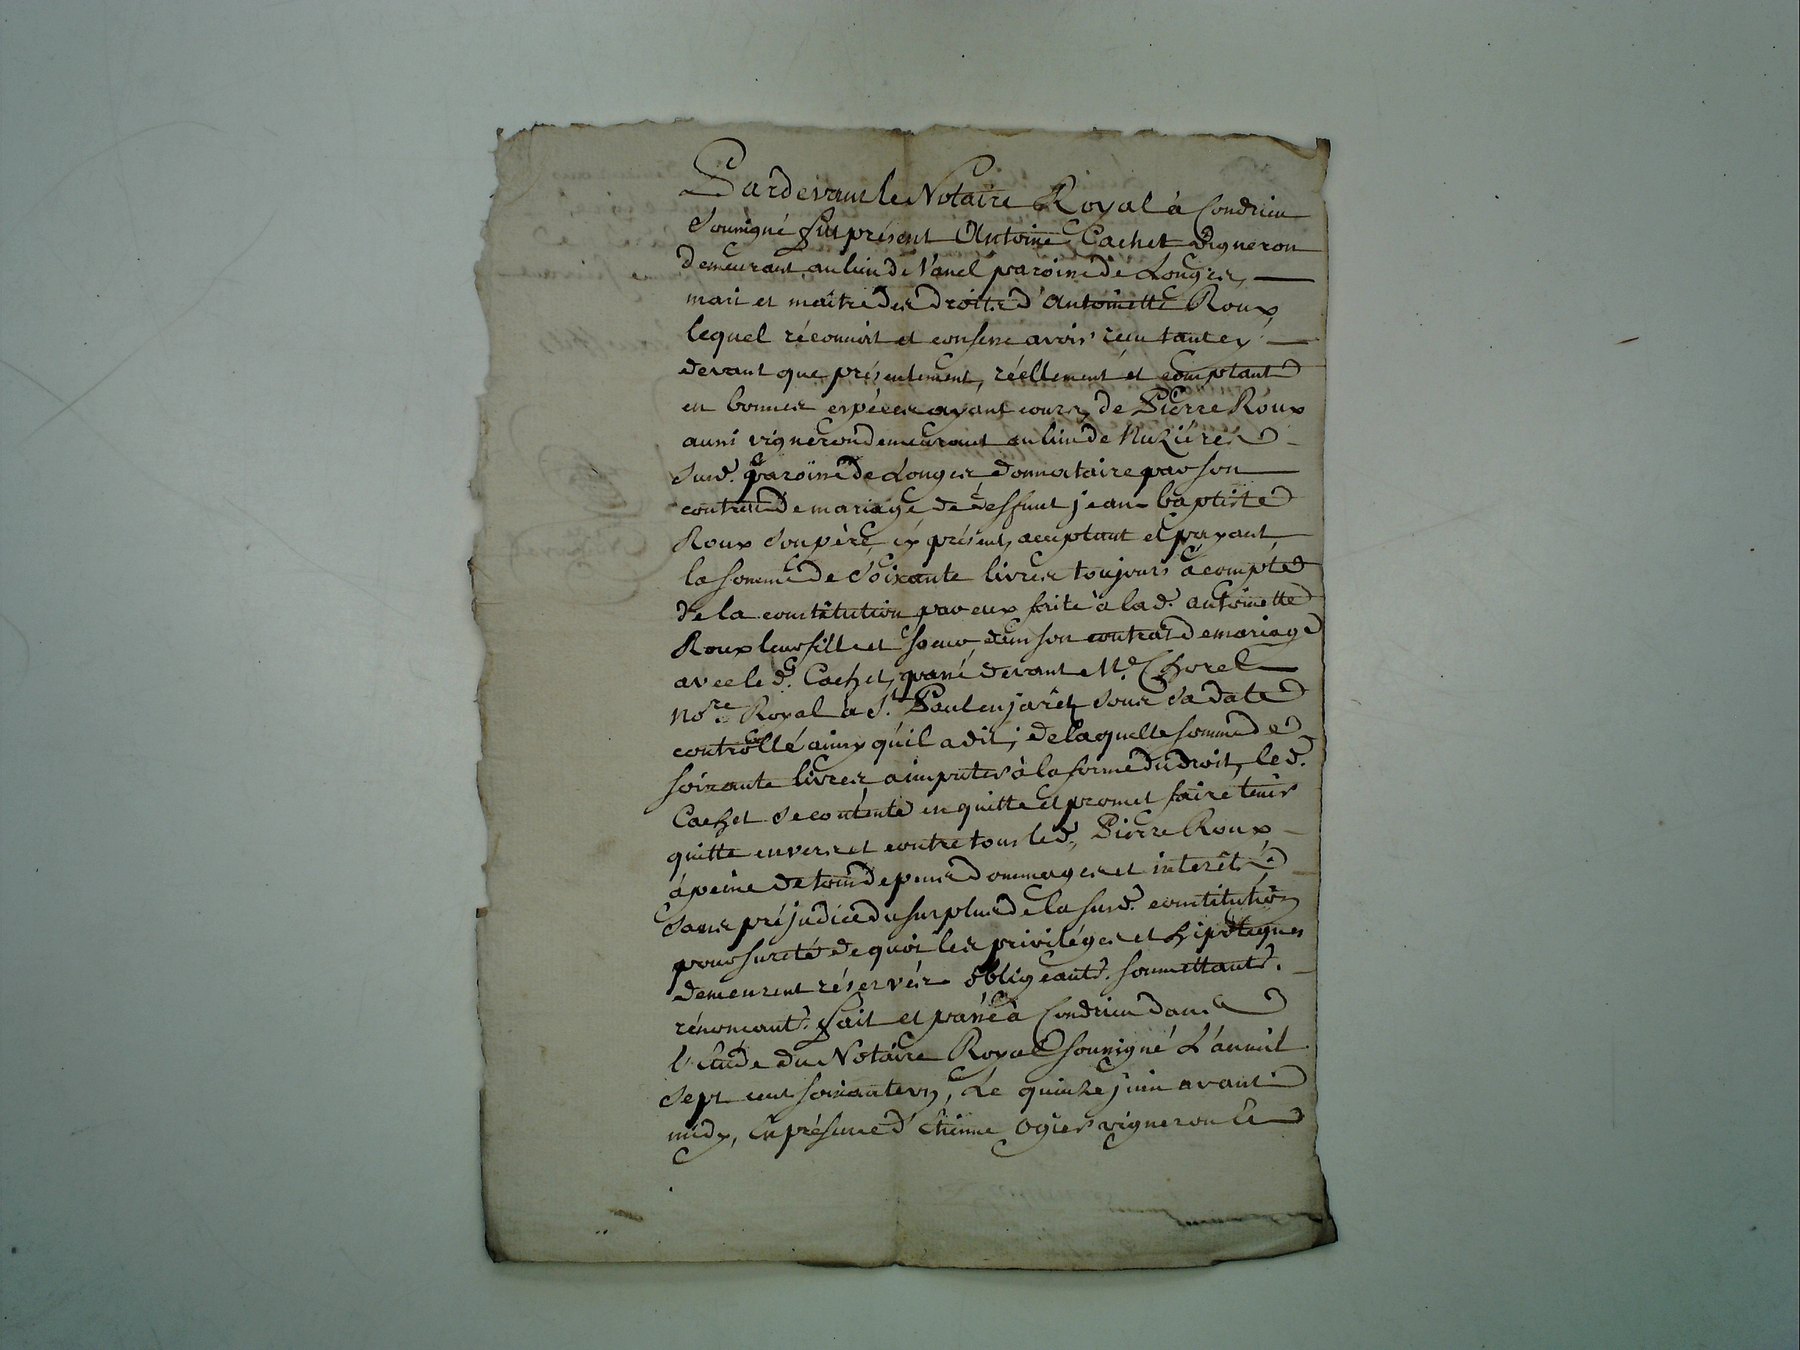 Pardevant le Notaire Royal à Condrieu
Soussigné fut présent Antoine Cachet vigneron
demeurant au lieu de Vanel paroisse de Longes,
mari et maître des droits d'Antoinette Roux,
lequel réconnoit et confesse avoir reçu tant cy
devant que présentement, réellement et comptant
en bonnes espéces ayant cours, de Pierre Roux
aussi vigneron demeurant au lieu de Nuzières
susd. paroisse de Longes, donnataire par son
contract de mariage de deffunt jean baptiste
Roux son père, cy présent, acceptant et payant,
la somme de Soixante livres toujours à compte
de la constitution par eux faite à lad. antoinette
Roux leur fille et soeur, dans son contrat de mariage
avec led. Cachet, passé devant Me. Chorel
Nore. Royal à St. Paul en jarêt sous sa date
controllé ainsy qu'il a dit; de laquelle somme de
soixante livres a imputer à la forme du droit, led.
Cachet se contente en quitte et promet faire tenir
quitte envers et contre tous led. Pierre Roux
à peine de tous depens dommages et interêts
sans préjudice du surplus de la susd. constitution
pour sureté de quoi les privilèges et hipoteques
demeurent réservés obligeant. soumettant.
rénonceant. fait et passé à Condrieu dans
l'étude du Notaire Royal soussigné L'an mil
Sept cent soixante , Le quinze juin avant
midy, En présence d'étienne Ogier vigneron Et